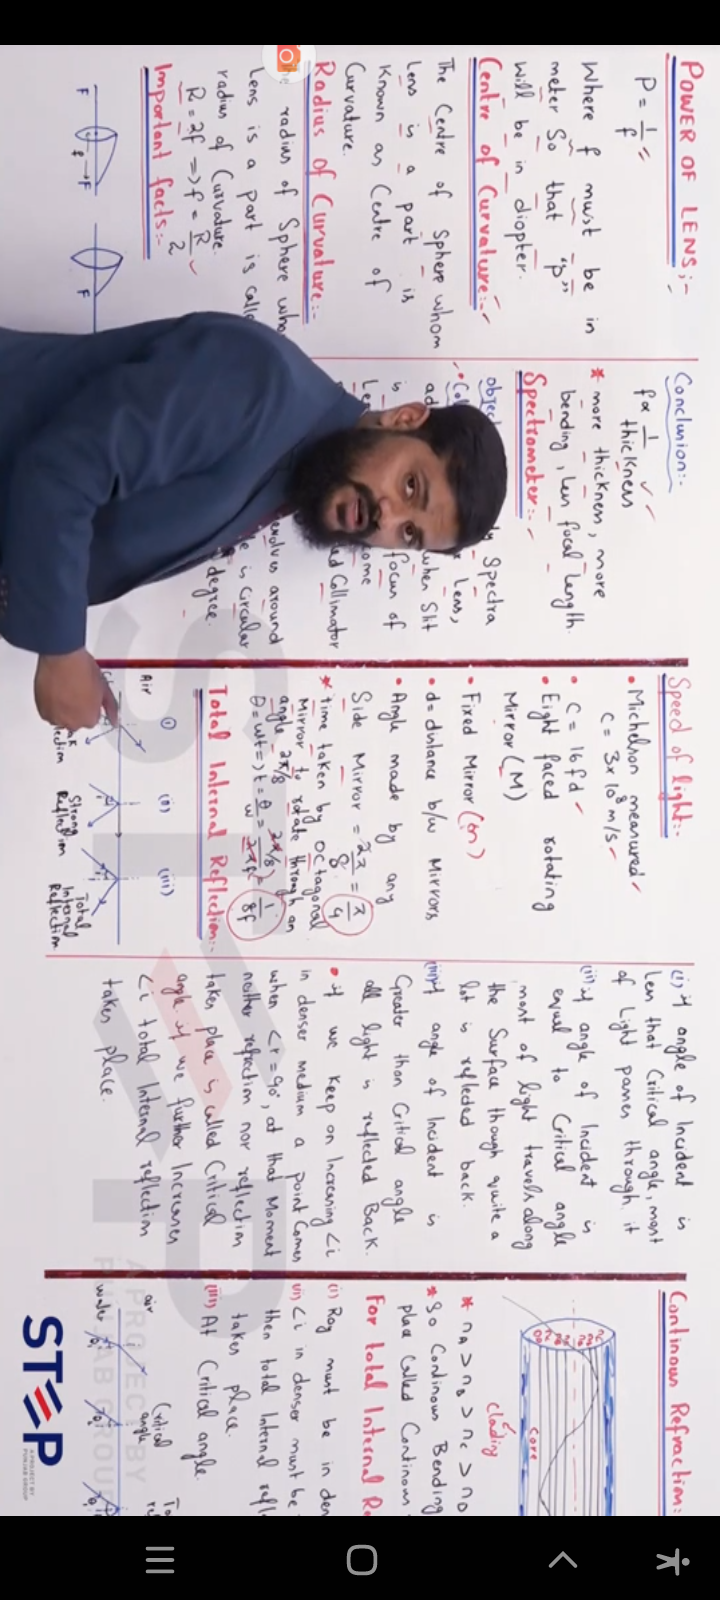 POWER OF LENS;-
P = 1/f
Where f must be in
meter So that "p"
will be in diopter.
Centre of Curvature:-
The Centre of Sphere whom
Lens is a part is
Known as Centre of
Curvature.
Radius of Curvature:-
radius of Sphere
Lens is a part is
radius of Curvature.
R = 2f => f = R/2
Important facts:-
F
f
F
F
Conclusion:-
f ∝ 1/thickness
* more thickness, more
bending, less focal length.
Spectrometer:-
Spectra
Lens,
when Slit
is focus of
Collimator
around
is Circular
degree.
Speed of light:-
• Michelson measured
C = 3x10⁸ m/s
• C = 16fd
• Eight faced rotating
Mirror (M)
• Fixed Mirror (m)
• d = distance b/w Mirrors
• Angle made by any
Side Mirror = 2π/8 = π/4
* time taken by octagonal
Mirror to rotate through an
angle 2π/8
θ = ωt => t = θ/ω = (2π/8)/2πf = 1/8f
Total Internal Reflection:-
(i) (ii) (iii)
Air
Strong
Reflection
Total
Internal
Reflection
(i) if angle of Incident is
Less that Critical angle, most
of Light passes through it
(ii) if angle of Incident is
equal to Critical angle
most of light travels along
the Surface though quite a
lot is reflected back.
(iii) if angle of Incident is
Greater than Critical angle
all light is reflected Back.
• if we keep on Increasing <i
in denser medium a point Comes
when <r = 90°, at that Moment
neither refraction nor reflection
takes place is called Critical
angle if we further Increases
<i total Internal reflection
takes place.
Continous Refraction:
core
clading
* nA > nB > nC > nD
* So Continous Bending
place Called Continous
For total Internal Re
(i) Ray must be in den
(ii) <i in denser must be
then total Internal refl
takes place.
(iii) At Critical angle
air
water
Critical
angle
STEP
A PROJECT BY
PUNJAB GROUP
STEP
A PROJECT BY
PUNJAB GROUP